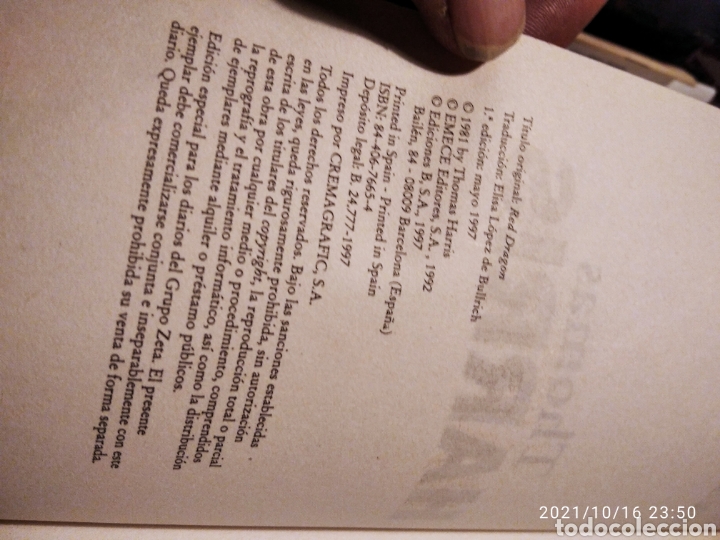 Título original: Red Dragon
Traducción: Elisa López de Bullrich
1.ª edición: mayo 1997
© 1981 by Thomas Harris
© EMECE Editores, S.A., 1992
© Ediciones B, S.A., 1997
Bailén, 84 - 08009 Barcelona (España)
Printed in Spain - Printed in Spain
ISBN: 84-406-7665-4
Depósito legal: B. 24,777-1997
Impreso por CREMAGRAFIC, S.A.
Todos los derechos reservados. Bajo las sanciones establecidas
en las leyes, queda rigurosamente prohibida, sin autorización
escrita de los titulares del copyright, la reproducción total o parcial
de esta obra por cualquier medio o procedimiento, comprendidos
la reprografía y el tratamiento informático, así como la distribución
de ejemplares mediante alquiler o préstamo públicos.
Edición especial para los diarios del Grupo Zeta. El presente
ejemplar debe comercializarse conjunta e inseparablemente con este
diario. Queda expresamente prohibida su venta de forma separada.
Thomas
HARRIS
2021/10/16 23:50
todocoleccion